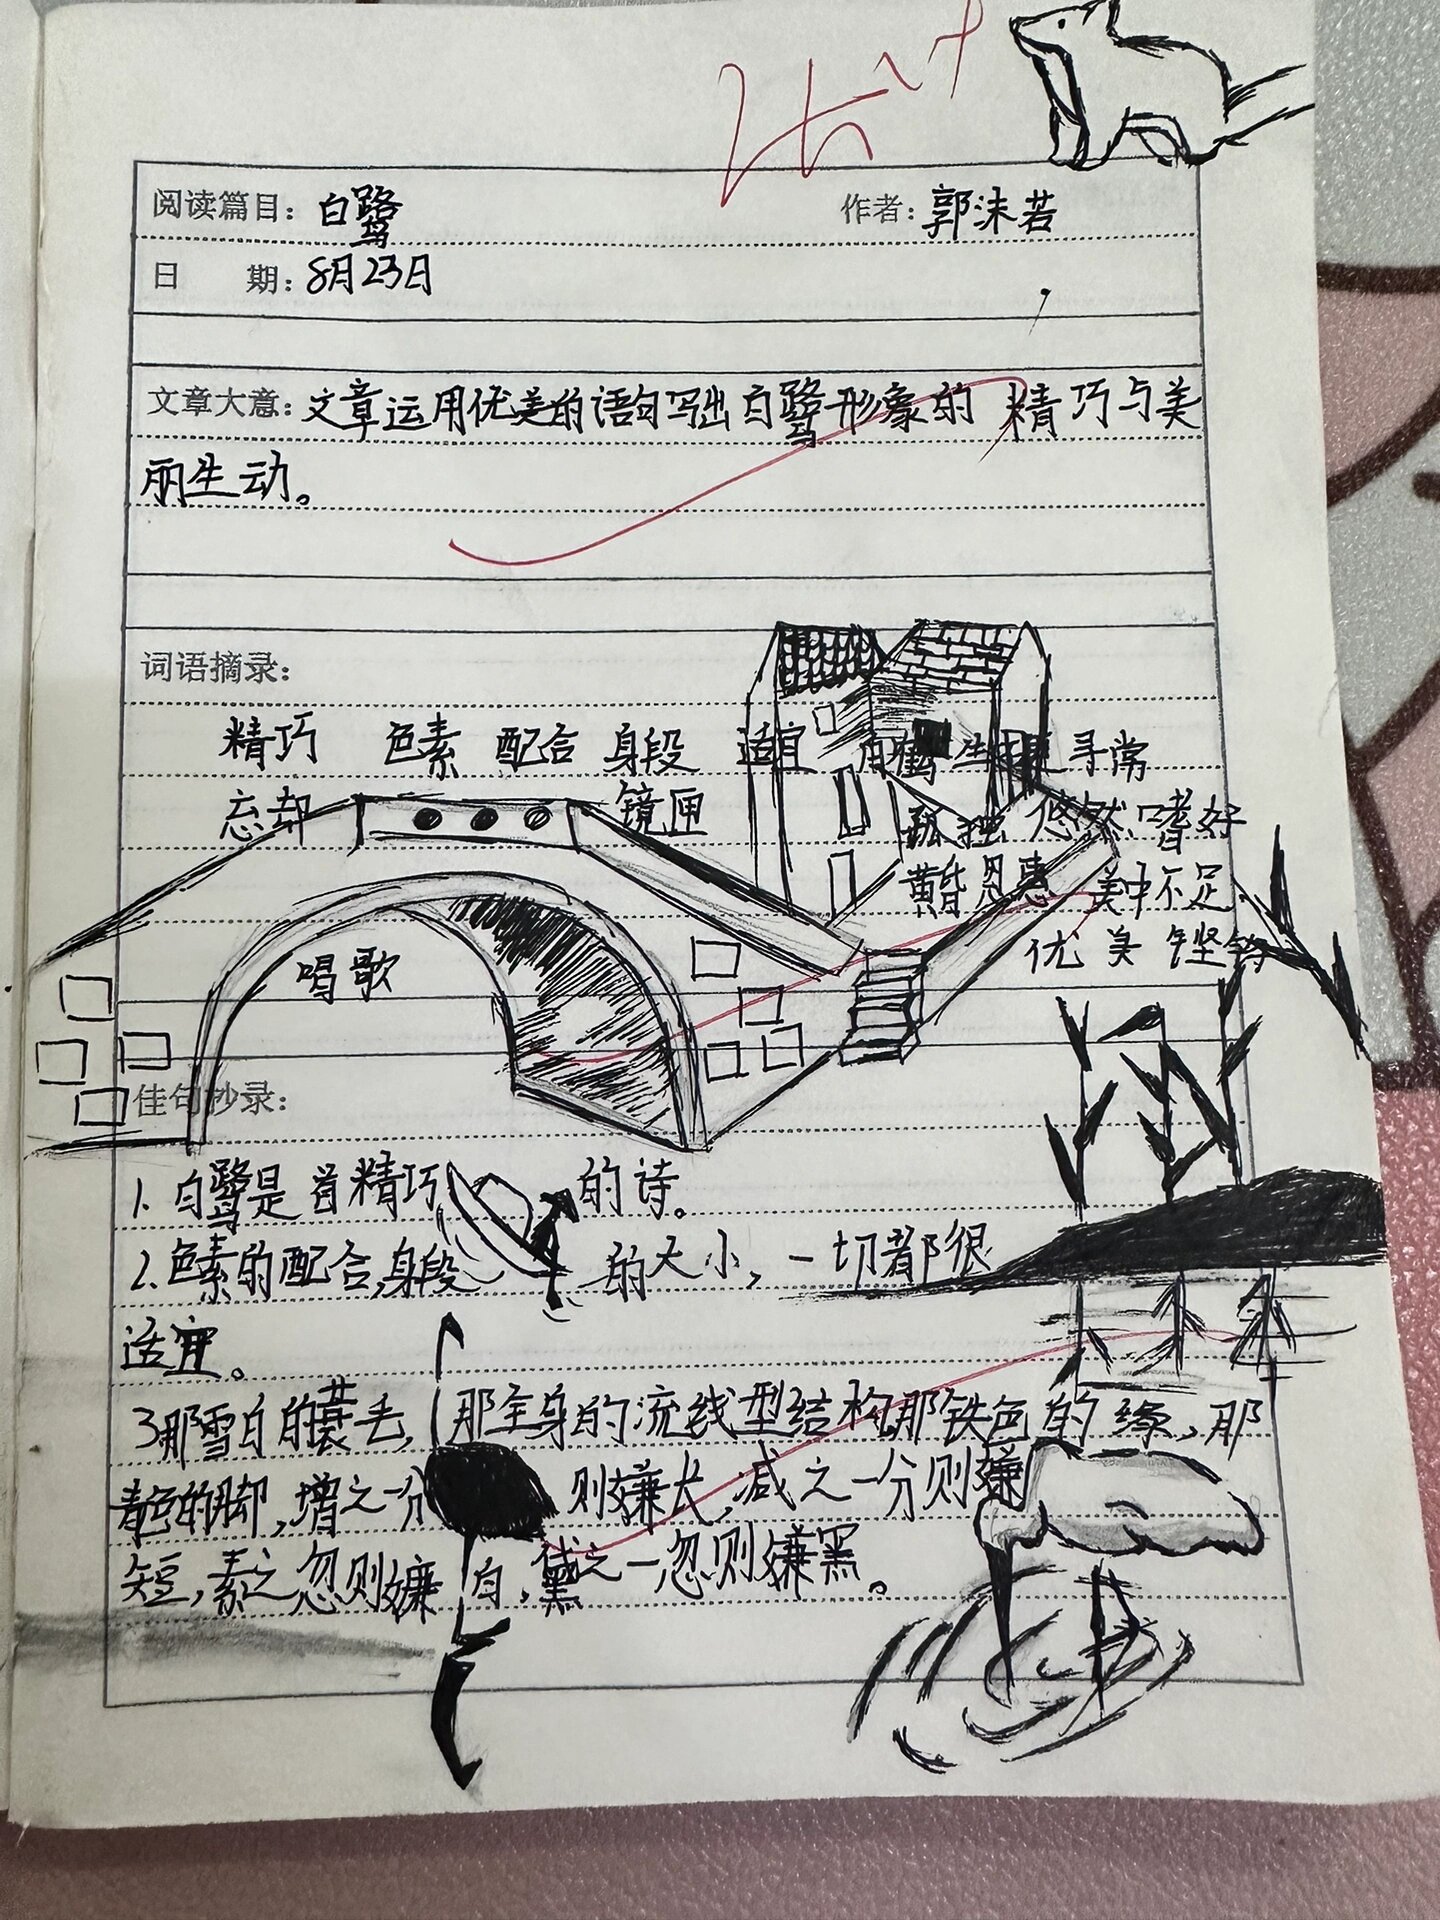 阅读篇目：白鹭 作者：郭沫若
日 期：8月23日
文章大意：文章运用优美的语句写出白鹭形象的精巧与美
丽生动。
词语摘录：
精巧 色素 配合 身段 适宜 白鹤 生硬 寻常
忘却 镜匣 孤独 悠然 嗜好
黄昏 恩惠 美中不足
唱歌 优美 铿锵
佳句抄录：
1. 白鹭是首精巧的诗。
2. 色素的配合,身段的大小，一切都很
适宜。
3那雪白的蓑毛，那全身的流线型结构那铁色的 喙，那
青色的脚，增之一分则嫌长，减之一分则嫌
短，素之忽则嫌白，黛之一忽则嫌黑。